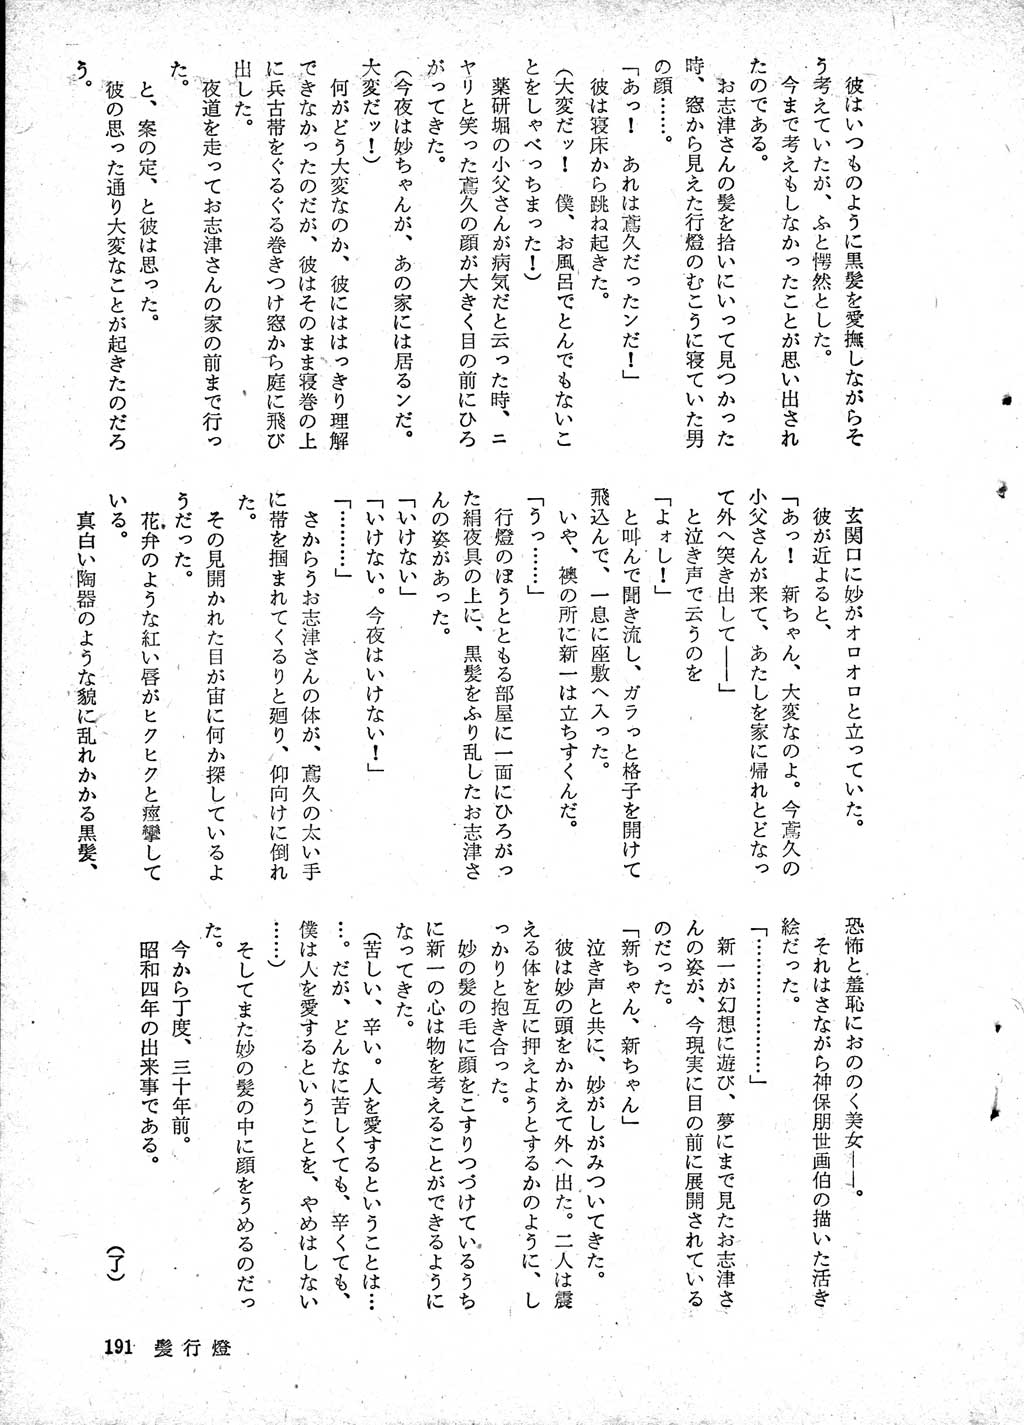 彼はいつものように黒髪を愛撫しながらそ
う考えていたが、ふと愕然とした。
今まで考えもしなかったことが思い出され
たのである。
お志津さんの髪を拾いにいって見つかった
時、窓から見えた行燈のむこうに寝ていた男
の顔……。
「あっ！　あれは鳶久だったンだ！」
彼は寝床から跳ね起きた。
（大変だッ！　僕、お風呂でとんでもないこ
とをしゃべっちまった！）
薬研堀の小父さんが病気だと云った時、ニ
ヤリと笑った鳶久の顔が大きく目の前にひろ
がってきた。
（今夜は妙ちゃんが、あの家には居るンだ。
大変だッ！）
何がどう大変なのか、彼にははっきり理解
できなかったのだが、彼はそのまま寝巻の上
に兵古帯をぐるぐる巻きつけ窓から庭に飛び
出した。
夜道を走ってお志津さんの家の前まで行っ
た。
と、案の定、と彼は思った。
彼の思った通り大変なことが起きたのだろ
う。
玄関口に妙がオロオロと立っていた。
彼が近よると、
「あっ！　新ちゃん、大変なのよ。今鳶久の
小父さんが来て、あたしを家に帰れとどなっ
て外へ突き出して――」
と泣き声で云うのを
「よォし！」
と叫んで聞き流し、ガラっと格子を開けて
飛込んで、一息に座敷へ入った。
いや、襖の所に新一は立ちすくんだ。
「うっ……」
行燈のぼうとともる部屋に一面にひろがっ
た絹夜具の上に、黒髪をふり乱したお志津さ
んの姿があった。
「いけない」
「いけない。今夜はいけない！」
「………」
さからうお志津さんの体が、鳶久の太い手
に帯を掴まれてくるりと廻り、仰向けに倒れ
た。
その見開かれた目が宙に何か探しているよ
うだった。
花弁のような紅い唇がヒクヒクと痙攣して
いる。
真白い陶器のような貌に乱れかかる黒髪、
恐怖と羞恥におののく美女――。
それはさながら神保朋世画伯の描いた活き
絵だった。
「…………………」
新一が幻想に遊び、夢にまで見たお志津さ
んの姿が、今現実に目の前に展開されている
のだった。
「新ちゃん、新ちゃん」
泣き声と共に、妙がしがみついてきた。
彼は妙の頭をかかえて外へ出た。二人は震
える体を互に押えようとするかのように、し
っかりと抱き合った。
妙の髪の毛に顔をこすりつづけているうち
に新一の心は物を考えることができるように
なってきた。
（苦しい、辛い。人を愛するということは…
…。だが、どんなに苦しくても、辛くても、
僕は人を愛するということを、やめはしない
……）
そしてまた妙の髪の中に顔をうめるのだっ
た。
今から丁度、三十年前。
昭和四年の出来事である。
（了）
191　髪行燈